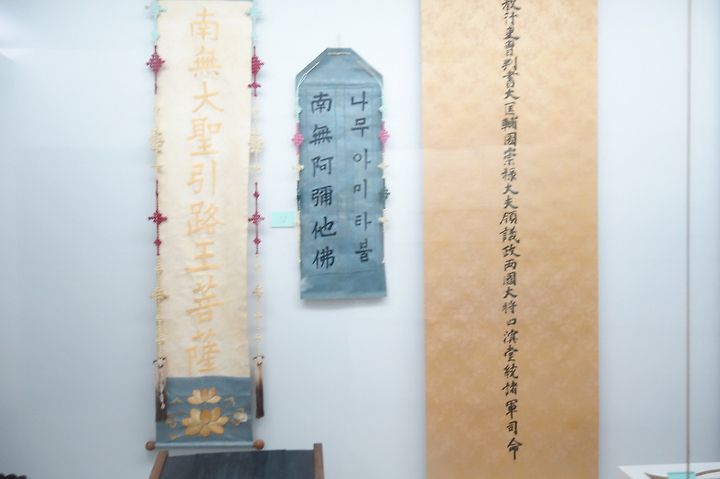 南無大聖引路王菩薩
나무아미타불
南無阿彌他佛
吏曹判書大匡輔國崇祿大夫領議政兩國大將
堂統諸軍司命